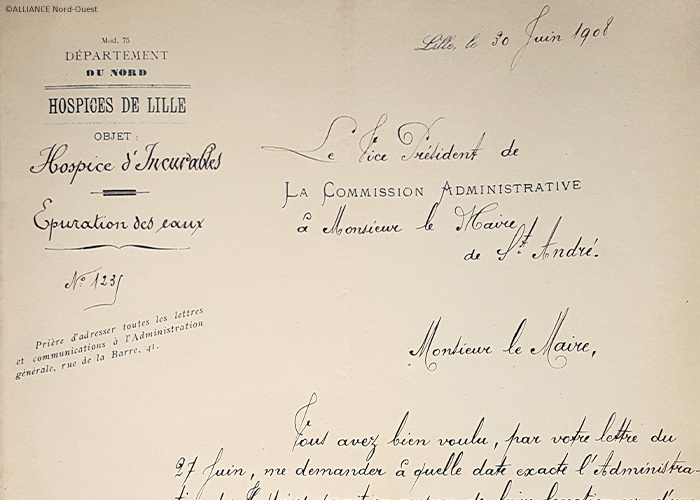 ©ALLIANCE Nord-Ouest
Mod. 75
DÉPARTEMENT
DU NORD
HOSPICES DE LILLE
OBJET :
Hospice d'Incurables
Epuration des eaux
N° 1235
Prière d'adresser toutes les lettres
et communications à l'Administration
générale, rue de la Barre, 41.
Lille, le 30 Juin 1908
Le Vice Président de
LA COMMISSION ADMINISTRATIVE
à Monsieur le Maire
de St André.
Monsieur le Maire,
Vous avez bien voulu, par votre lettre du
27 Juin, me demander à quelle date exacte l'Administra-